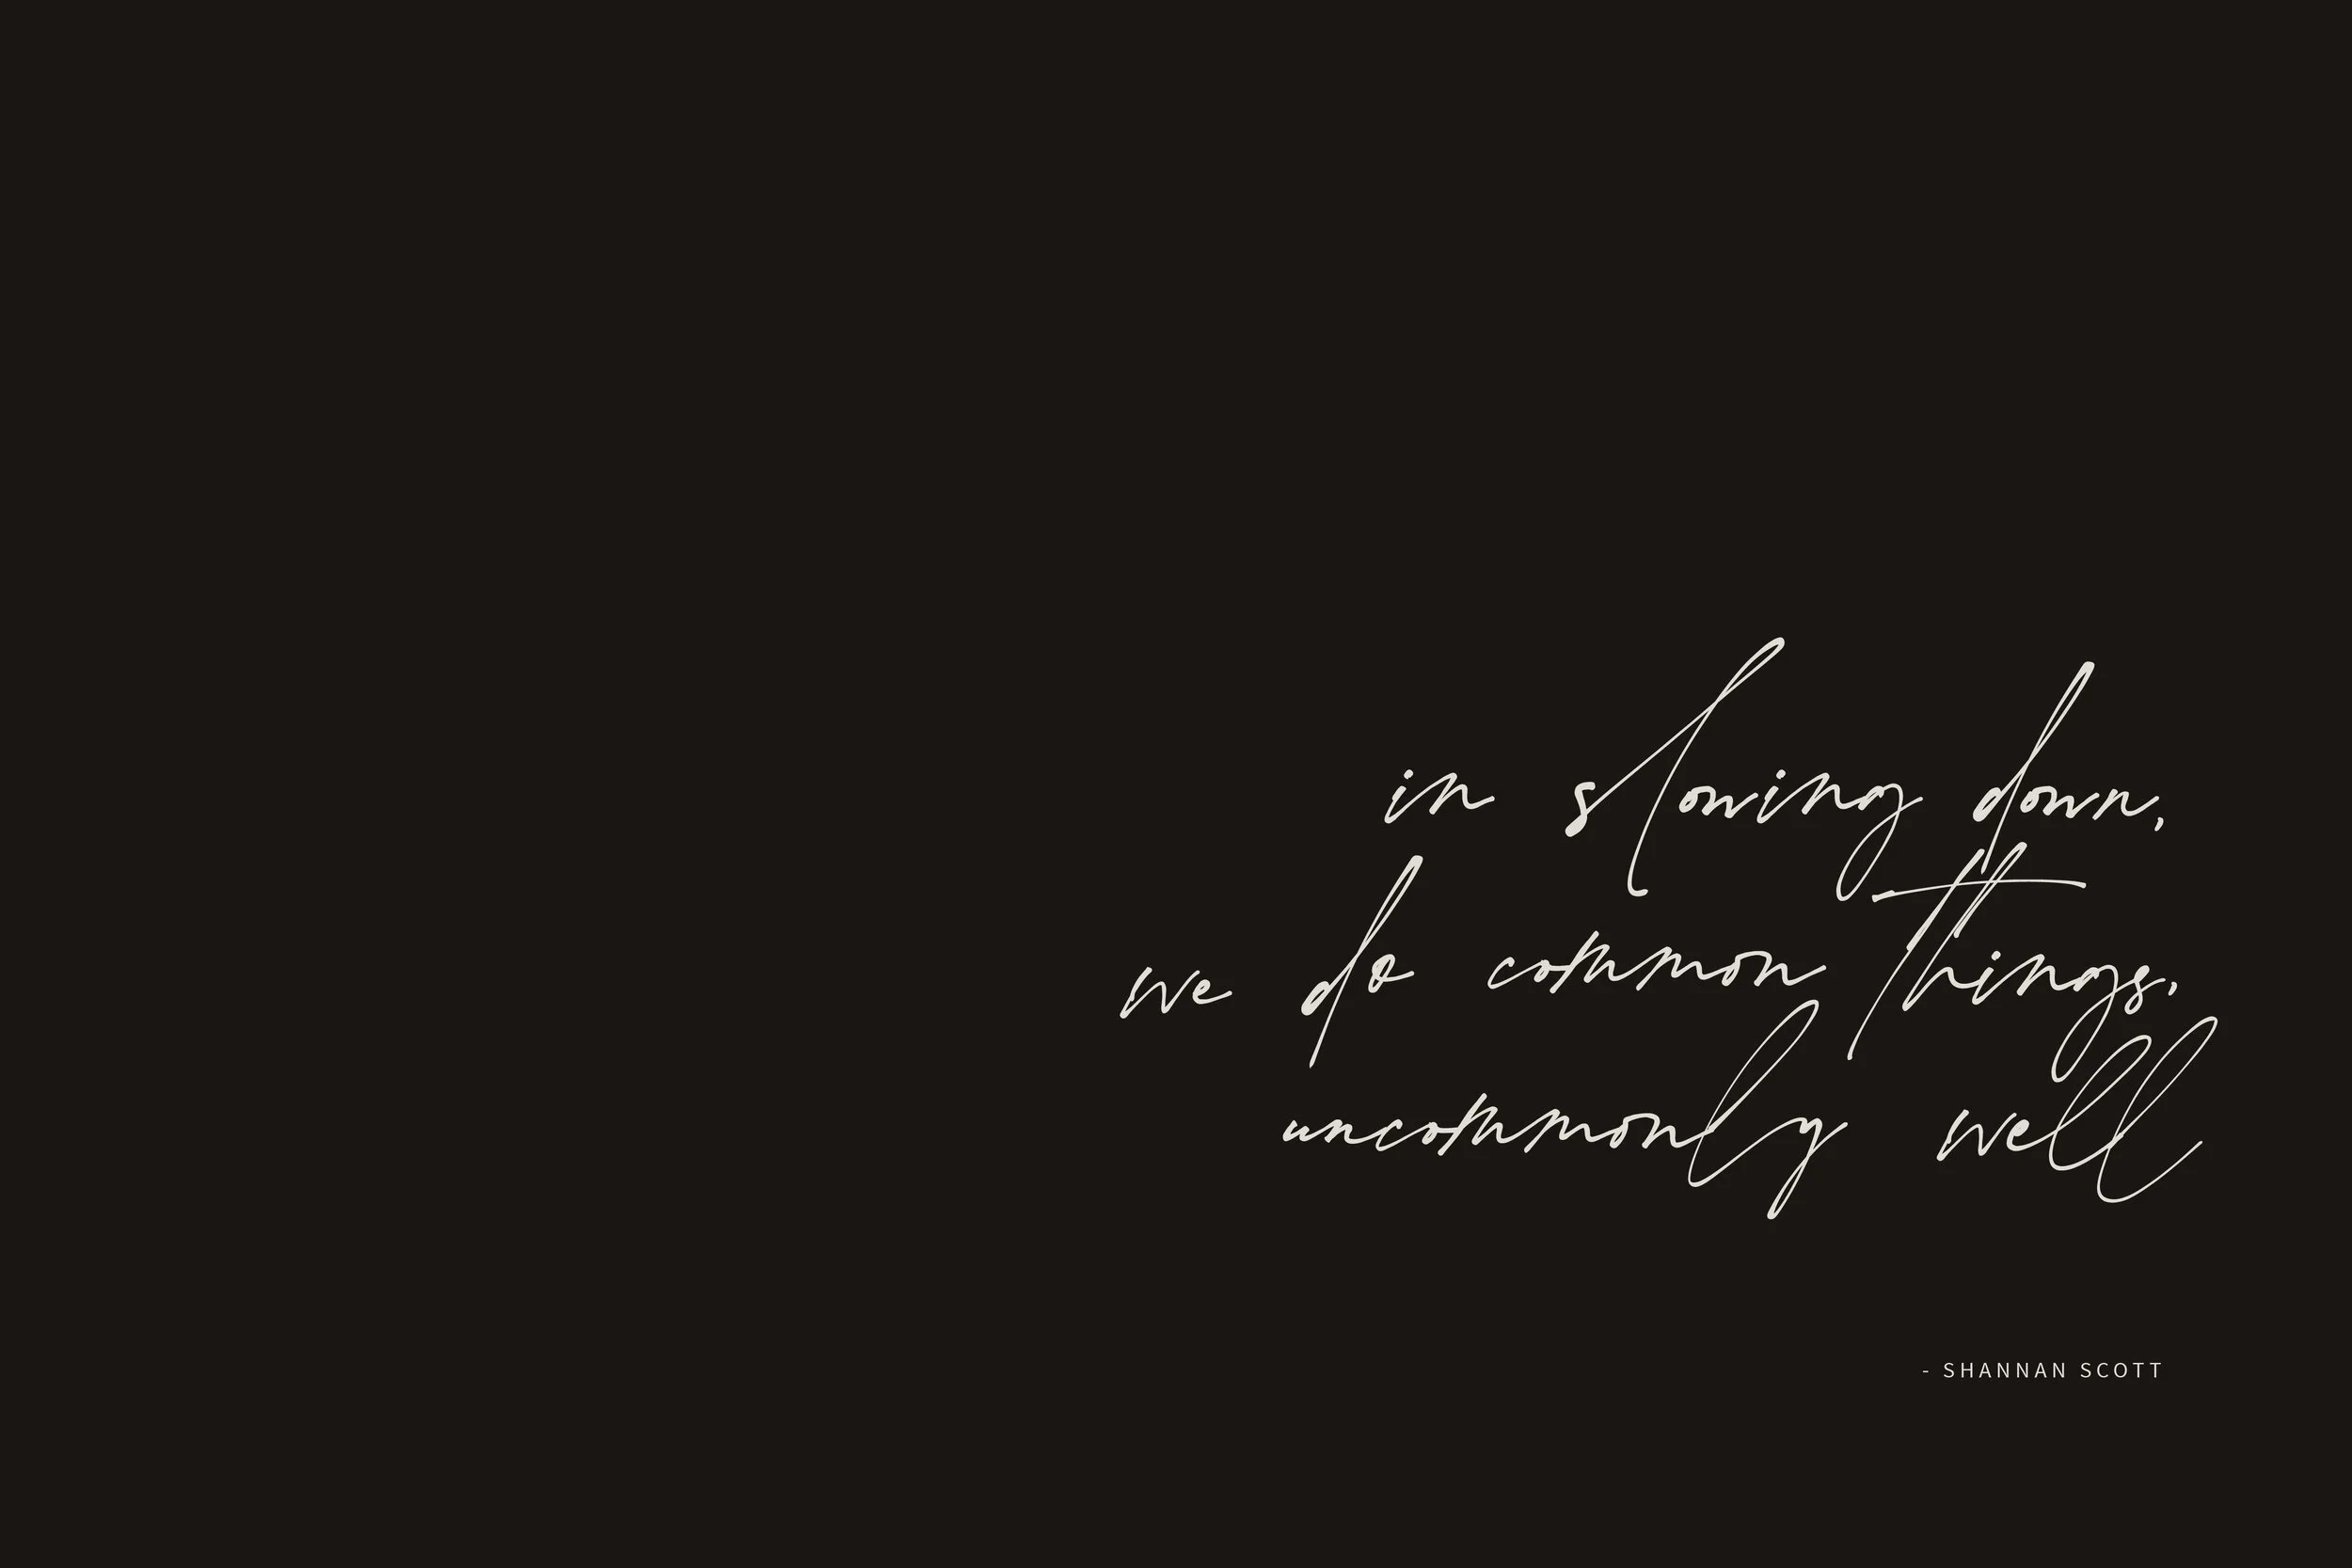 in slowing down,
we do common things,
uncommonly well
- SHANNAN SCOTT